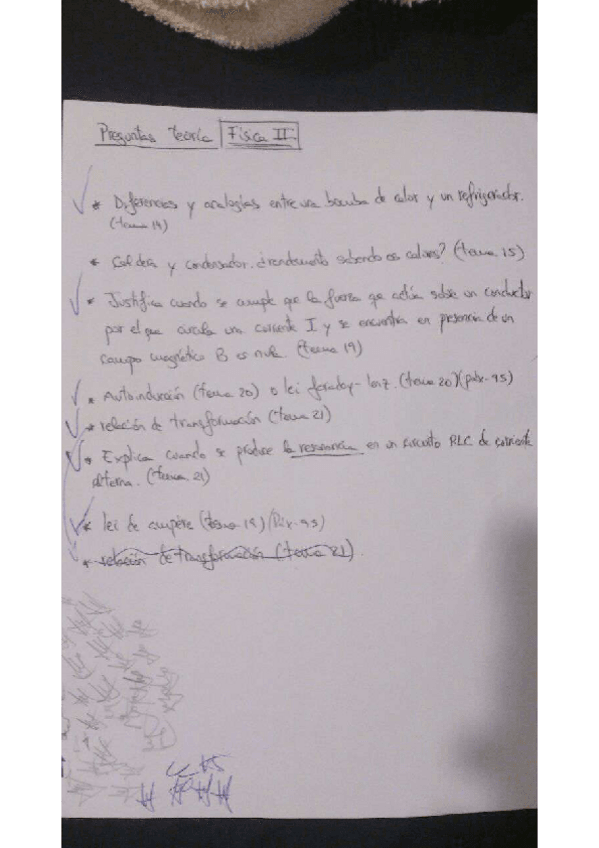 Preguntas teoría Física II
* Diferencias y analogías entre una bomba de calor y un refrigerador.
(tema 14)
* Caldera y condensador. ¿rendimiento sabiendo os calores? (tema 15)
* Justifica cuando se cumple que la fuerza que actúa sobre un conductor
por el que circula una corriente I y se encuentra en presencia de un
campo magnético B es nula (tema 19)
* Autoinducción (tema 20) o lei faraday-lenz. (tema 20)(páx-95)
* relación de transformación (tema 21)
* Explica cuando se produce la resonancia en un circuito RLC de corriente
alterna. (tema 21)
* lei de ampère (tema 19)(páx-95)
* relación de transformación (tema 21).